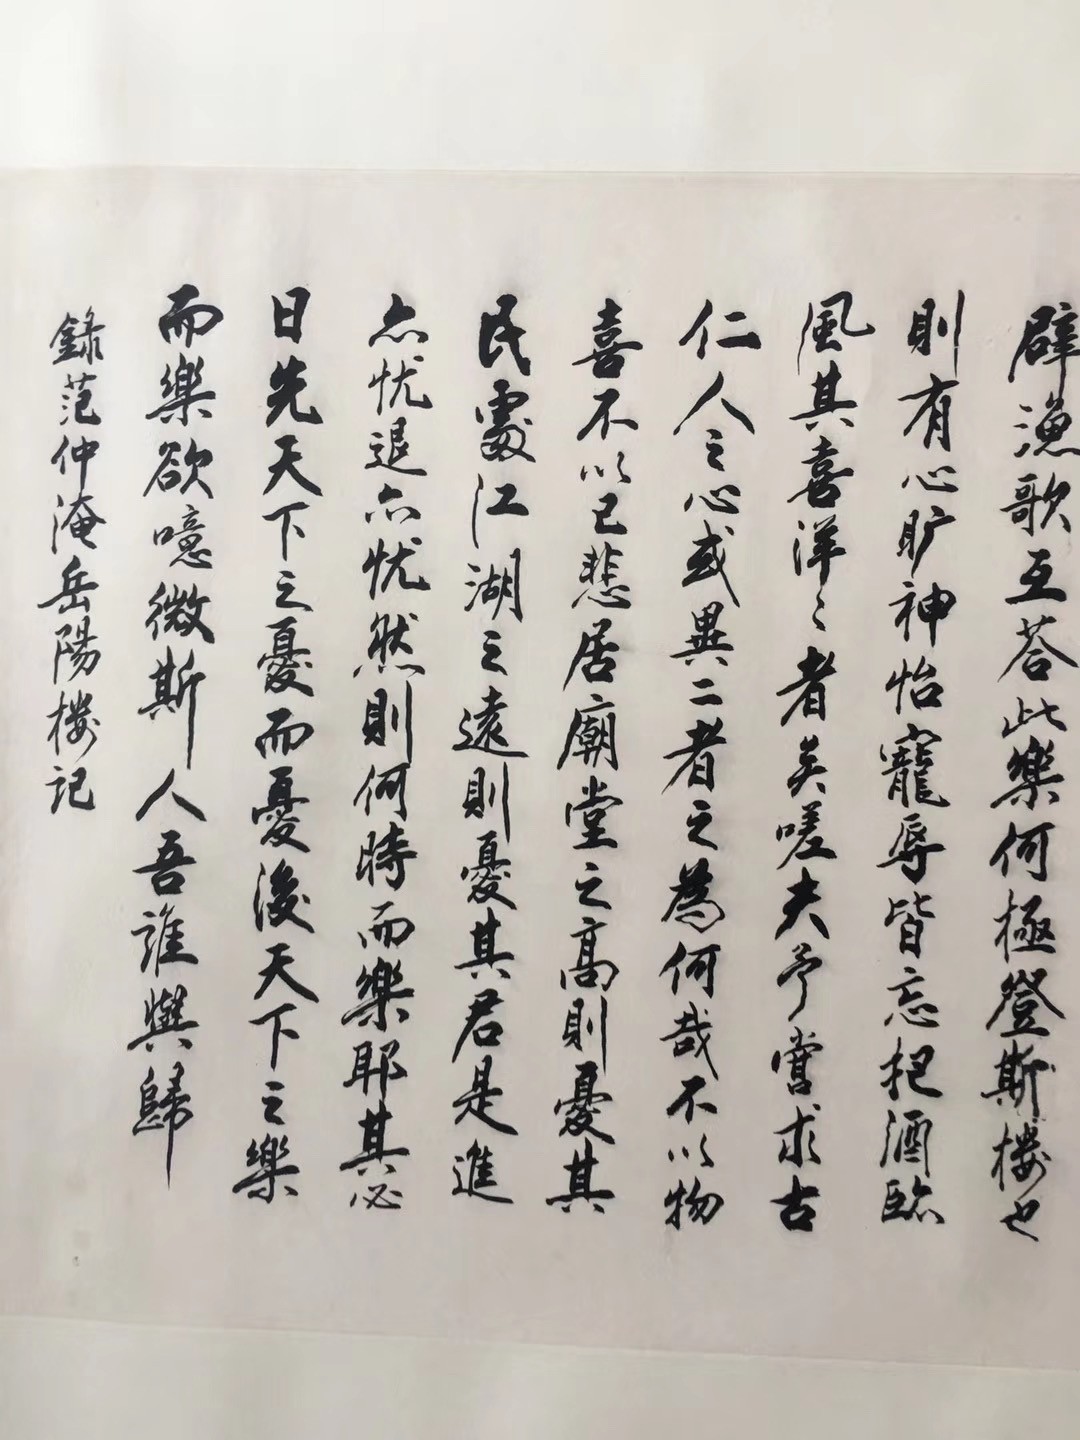 璧漁歌互荅此樂何極登斯楼也
則有心旷神怡寵辱皆忘把酒臨
風其喜洋〻者矣嗟夫予嘗求古
仁人之心或異二者之為何哉不以物
喜不以己悲居廟堂之高則憂其
民處江湖之遠則憂其君是進
亦忧退亦忧然則何時而樂耶其必
曰先天下之憂而憂後天下之樂
而樂欤噫微斯人吾誰與歸
錄范仲淹岳陽楼记